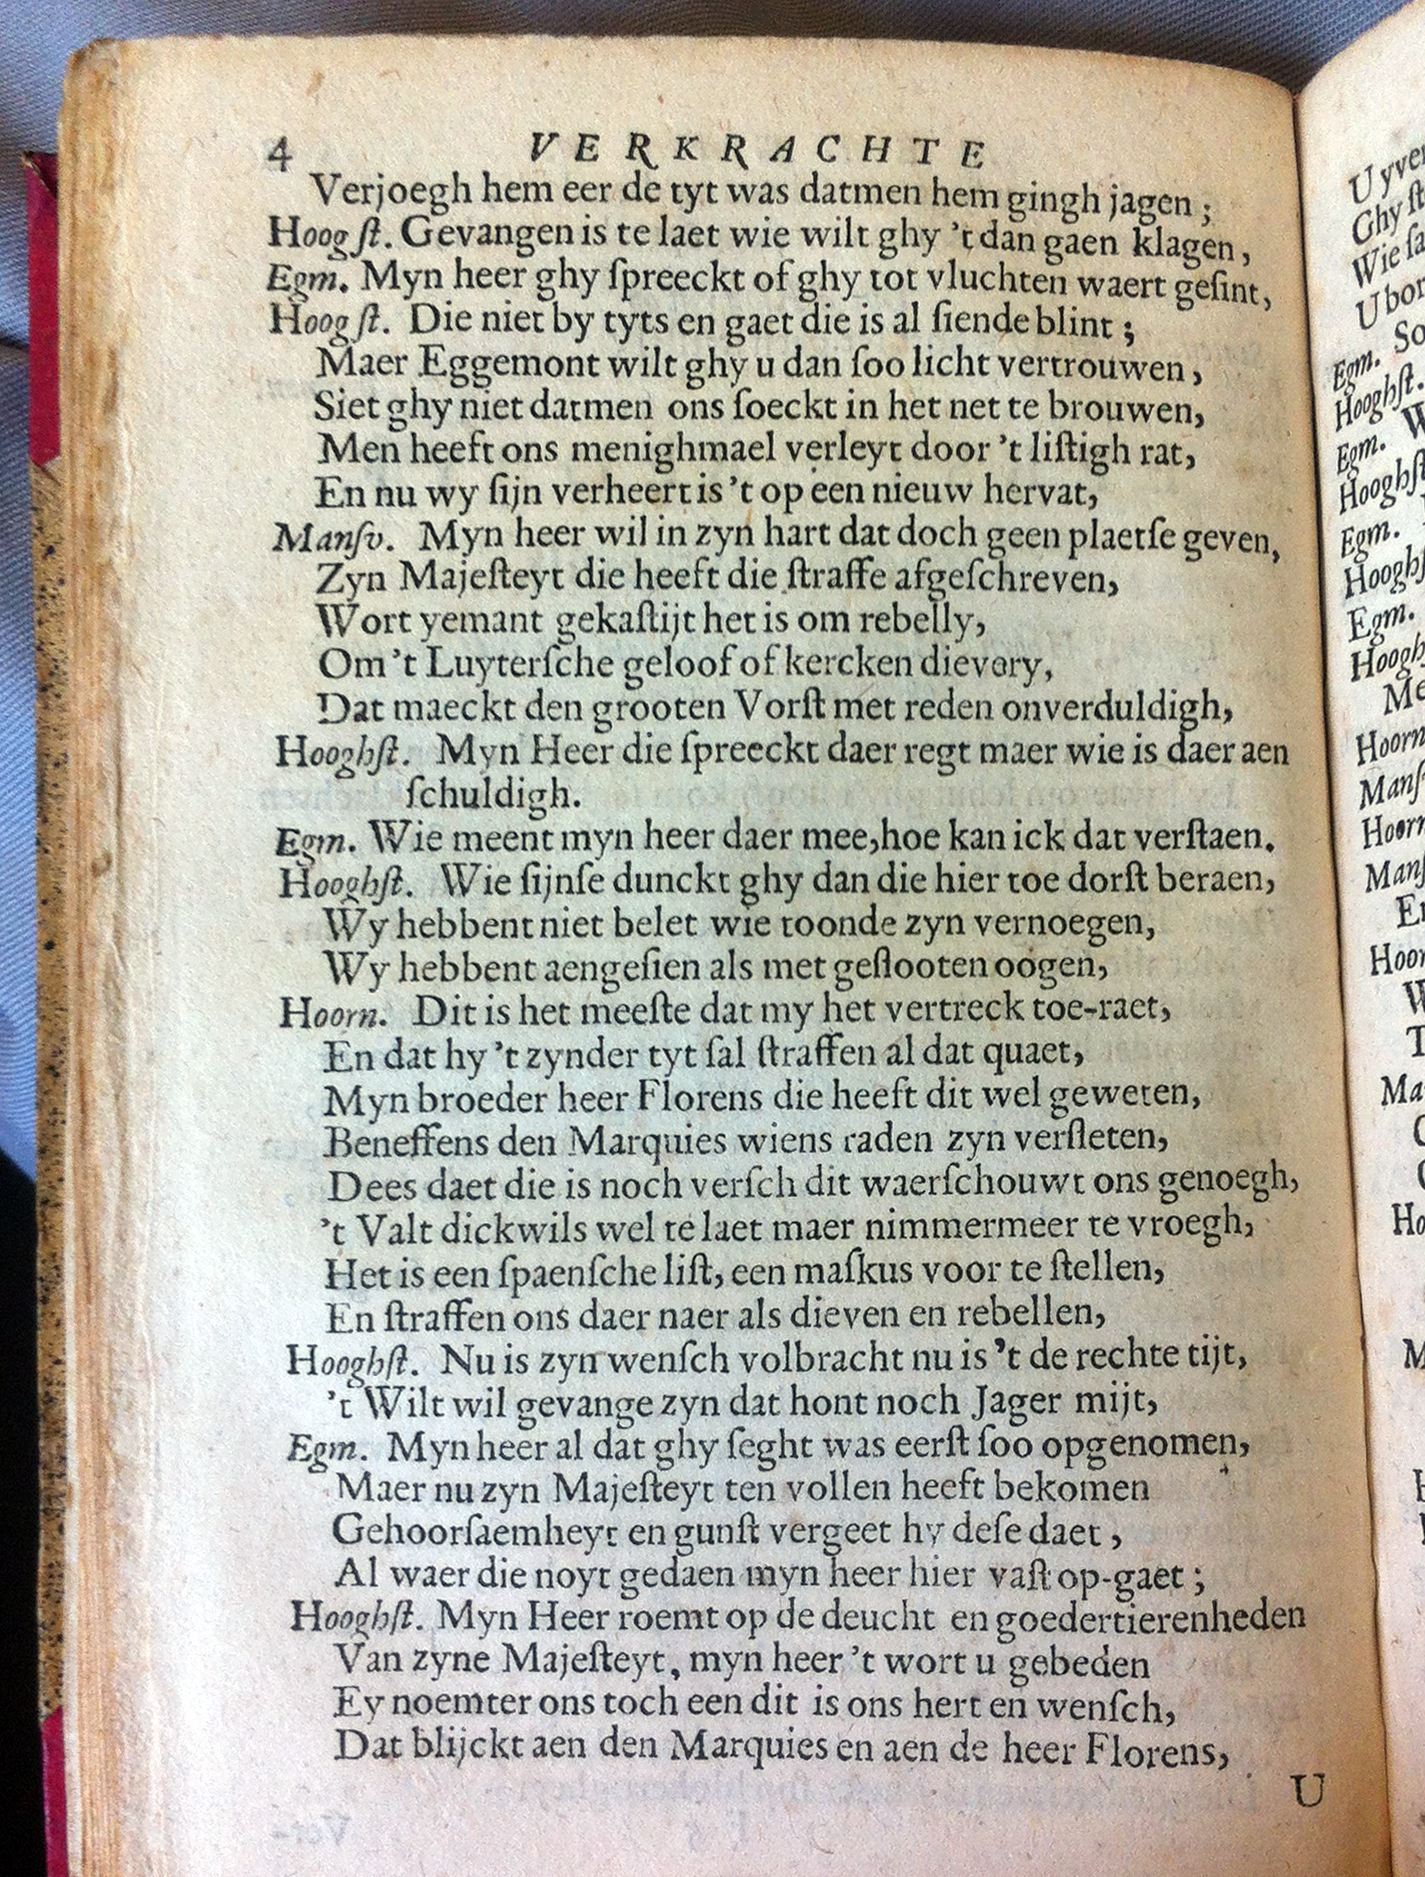 4 VERKRACHTE
Verjoegh hem eer de tyt was datmen hem gingh jagen ;
Hoogſt. Gevangen is te laet wie wilt ghy 't dan gaen klagen,
Egm. Myn heer ghy ſpreeckt of ghy tot vluchten waert geſint,
Hoogſt. Die niet by tyts en gaet die is al ſiende blint ;
Maer Eggemont wilt ghy u dan ſoo licht vertrouwen,
Siet ghy niet datmen ons ſoeckt in het net te brouwen,
Men heeft ons menighmael verleyt door 't liſtigh rat,
En nu wy ſijn verheert is 't op een nieuw hervat,
Manſv. Myn heer wil in zyn hart dat doch geen plaetſe geven,
Zyn Majeſteyt die heeft die ſtraffe afgeſchreven,
Wort yemant gekaſtijt het is om rebelly,
Om 't Luyterſche geloof of kercken dievery,
Dat maeckt den grooten Vorſt met reden onverduldigh,
Hooghſt. Myn Heer die ſpreeckt daer regt maer wie is daer aen
ſchuldigh.
Egm. Wie meent myn heer daer mee, hoe kan ick dat verſtaen.
Hooghſt. Wie ſijnſe dunckt ghy dan die hier toe dorſt beraen,
Wy hebbent niet belet wie toonde zyn vernoegen,
Wy hebbent aengeſien als met geſlooten oogen,
Hoorn. Dit is het meeſte dat my het vertreck toe-raet,
En dat hy 't zynder tyt ſal ſtraffen al dat quaet,
Myn broeder heer Florens die heeft dit wel geweten,
Beneffens den Marquies wiens raden zyn verſleten,
Dees daet die is noch verſch dit waerſchouwt ons genoegh,
't Valt dickwils wel te laet maer nimmermeer te vroegh,
Het is een ſpaenſche liſt, een maſkus voor te ſtellen,
En ſtraffen ons daer naer als dieven en rebellen,
Hooghſt. Nu is zyn wenſch volbracht nu is 't de rechte tijt,
't Wilt wil gevange zyn dat hont noch Jager mijt,
Egm. Myn heer al dat ghy ſeght was eerſt ſoo opgenomen,
Maer nu zyn Majeſteyt ten vollen heeft bekomen
Gehoorſaemheyt en gunſt vergeet hy deſe daet ,
Al waer die noyt gedaen myn heer hier vaſt op-gaet ;
Hooghſt. Myn Heer roemt op de deucht en goedertierenheden
Van zyne Majeſteyt, myn heer 't wort u gebeden
Ey noemter ons toch een dit is ons hert en wenſch,
Dat blijckt aen den Marquies en aen de heer Florens,
U
Uyver
Ghy ſt
Wie ſa
U bor
So
Egm.
Hooghſt.
Egm. W
Hooghſt
Egm.
Hooghſ
Egm.
Hoogh
Me
Hoorn
Manſ
Hoorn
Manſ
En
Hoor
W
T
Ma
Ho
M